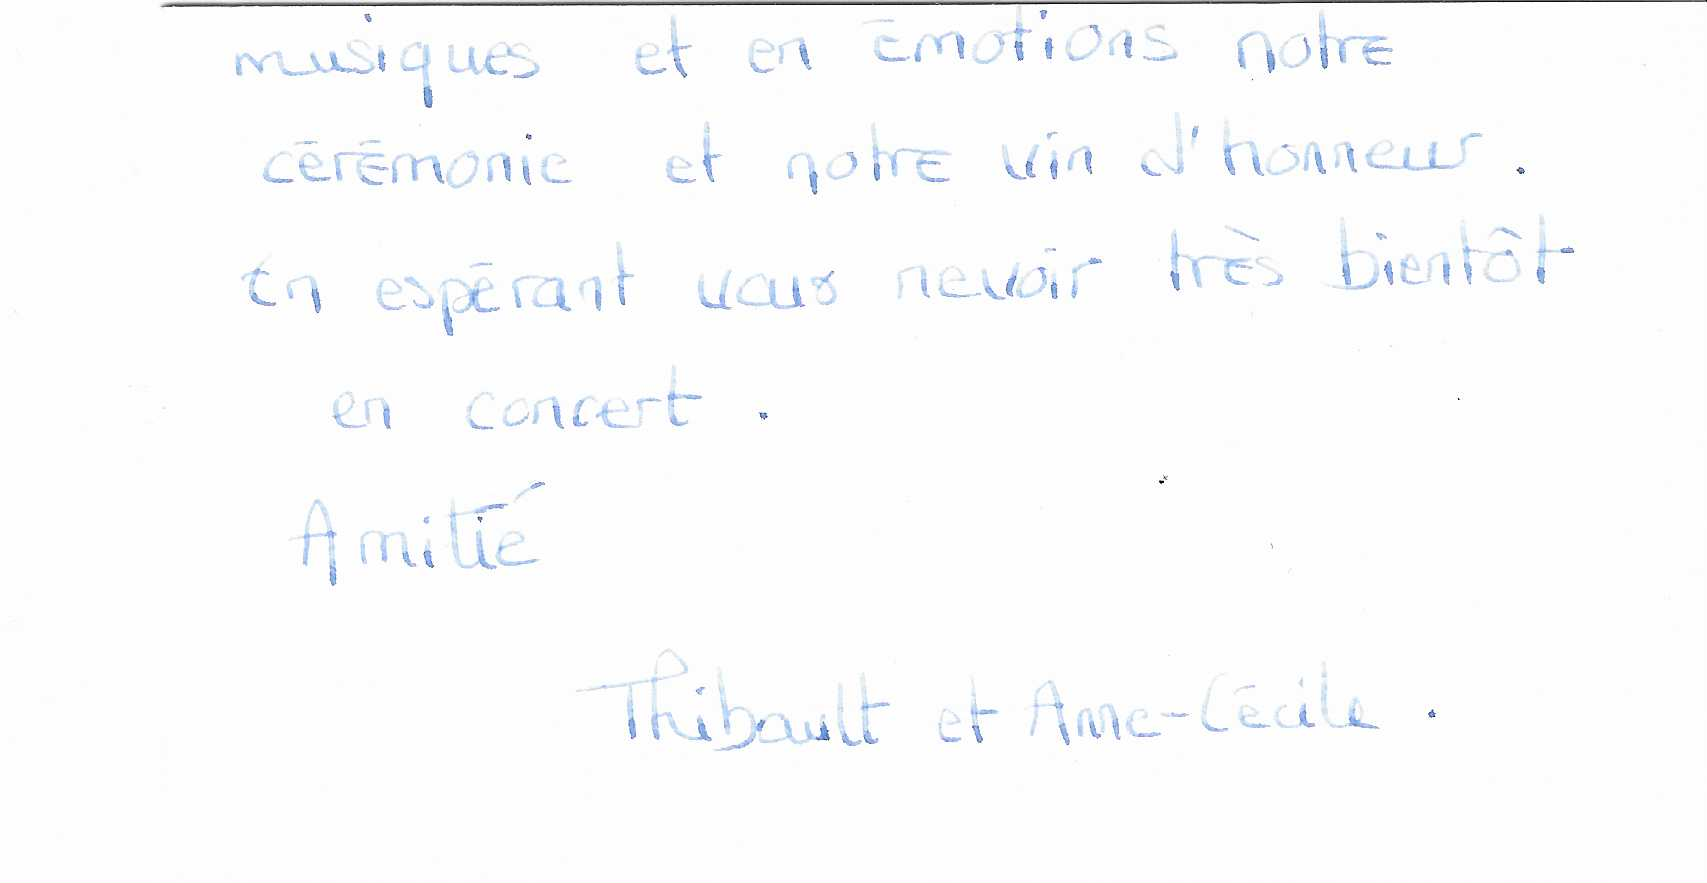 musiques et en émotions notre
cérémonie et notre vin d'honneur.
En espérant vous revoir très bientôt
en concert.
Amitié
Thibault et Anne-Cécile.